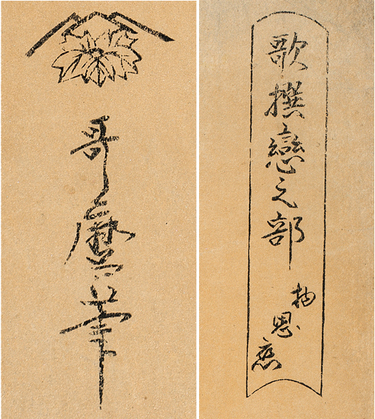 哥麿筆
歌撰戀之部
物思恋